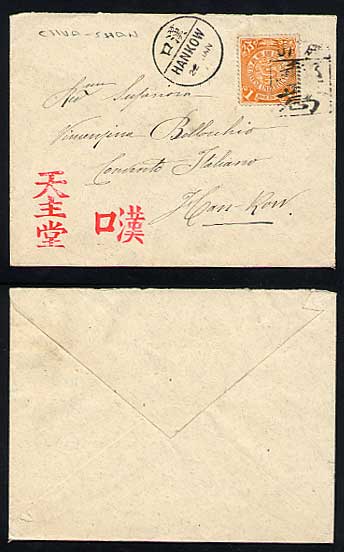 CIIVA-SHAN
漢口
HANKOW
24 JAN
Superiora
Vincenzina Bellocchio
Convento Italiano
Han-Kow.
天主堂
漢口